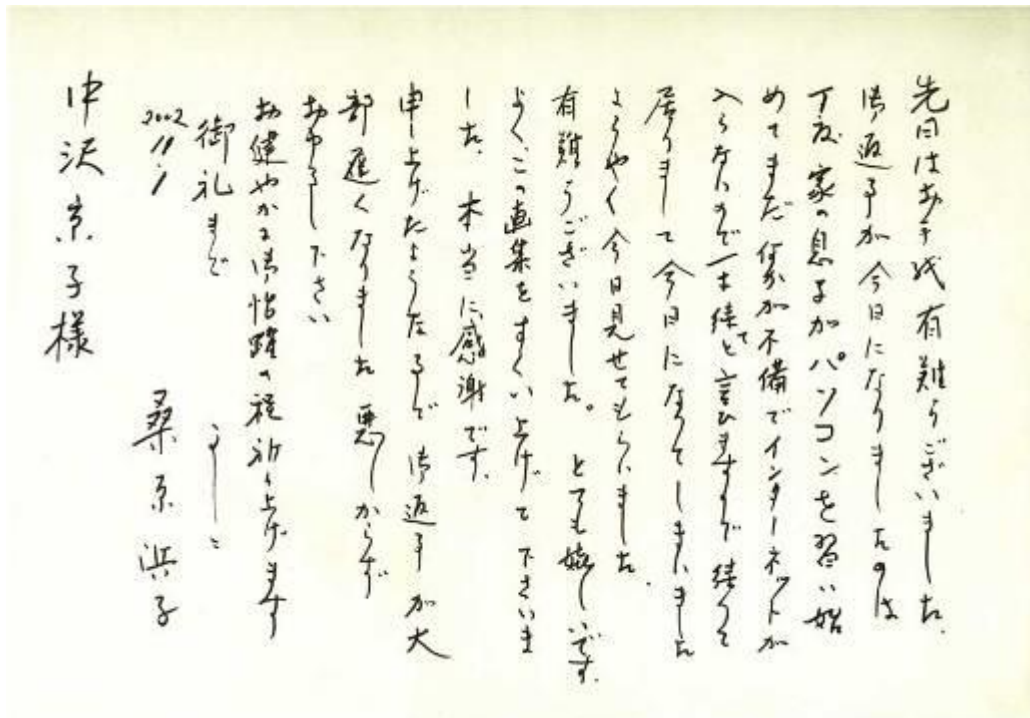 先日はお手紙有難うございました。
御返事が今日になりましたのは
丁度家の息子がパソコンを習い始
めてまだ何かが不備でインターネットが
入らないので一寸待てと言ひますので待って
居りまして今日になってしまいました
ようやく今日見せてもらいました
有難うございました。とても嬉しいです。
よくこの画集をすくい上げて下さいま
した。本当に感謝です。
申し上げたような事で御返事が大
部遅くなりました悪しからず
おゆるし下さい
お健やかな御活躍の程祈り上げます
御礼まで
2002 11/1
桑原浜子
中沢京子様